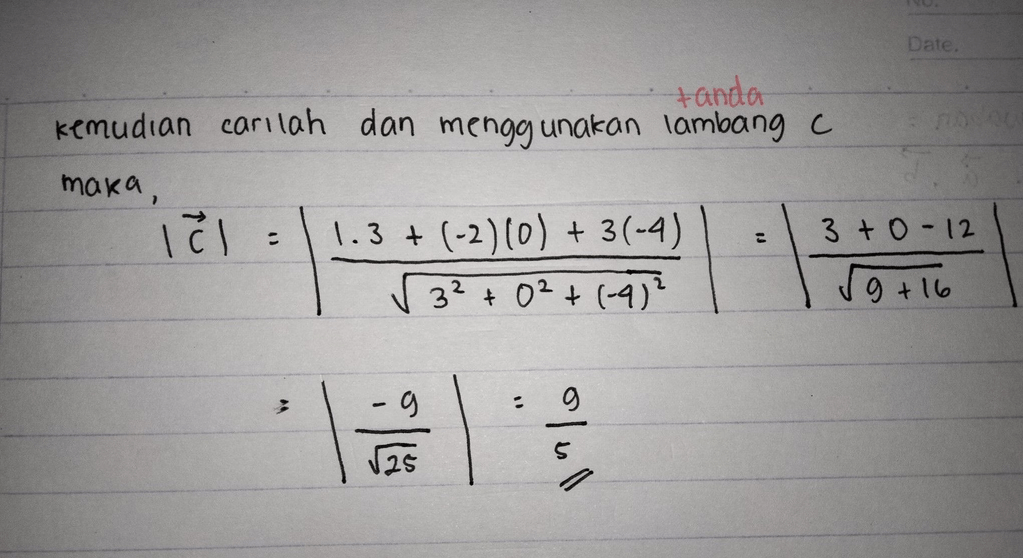 No.
Date.
tanda
kemudian carilah dan menggunakan lambang c
maka,
|c⃗| = | 1.3 + (-2)(0) + 3(-4) / √3² + 0² + (-4)² | = | 3 + 0 - 12 / √9 + 16 |
= | -9 / √25 | = 9 / 5